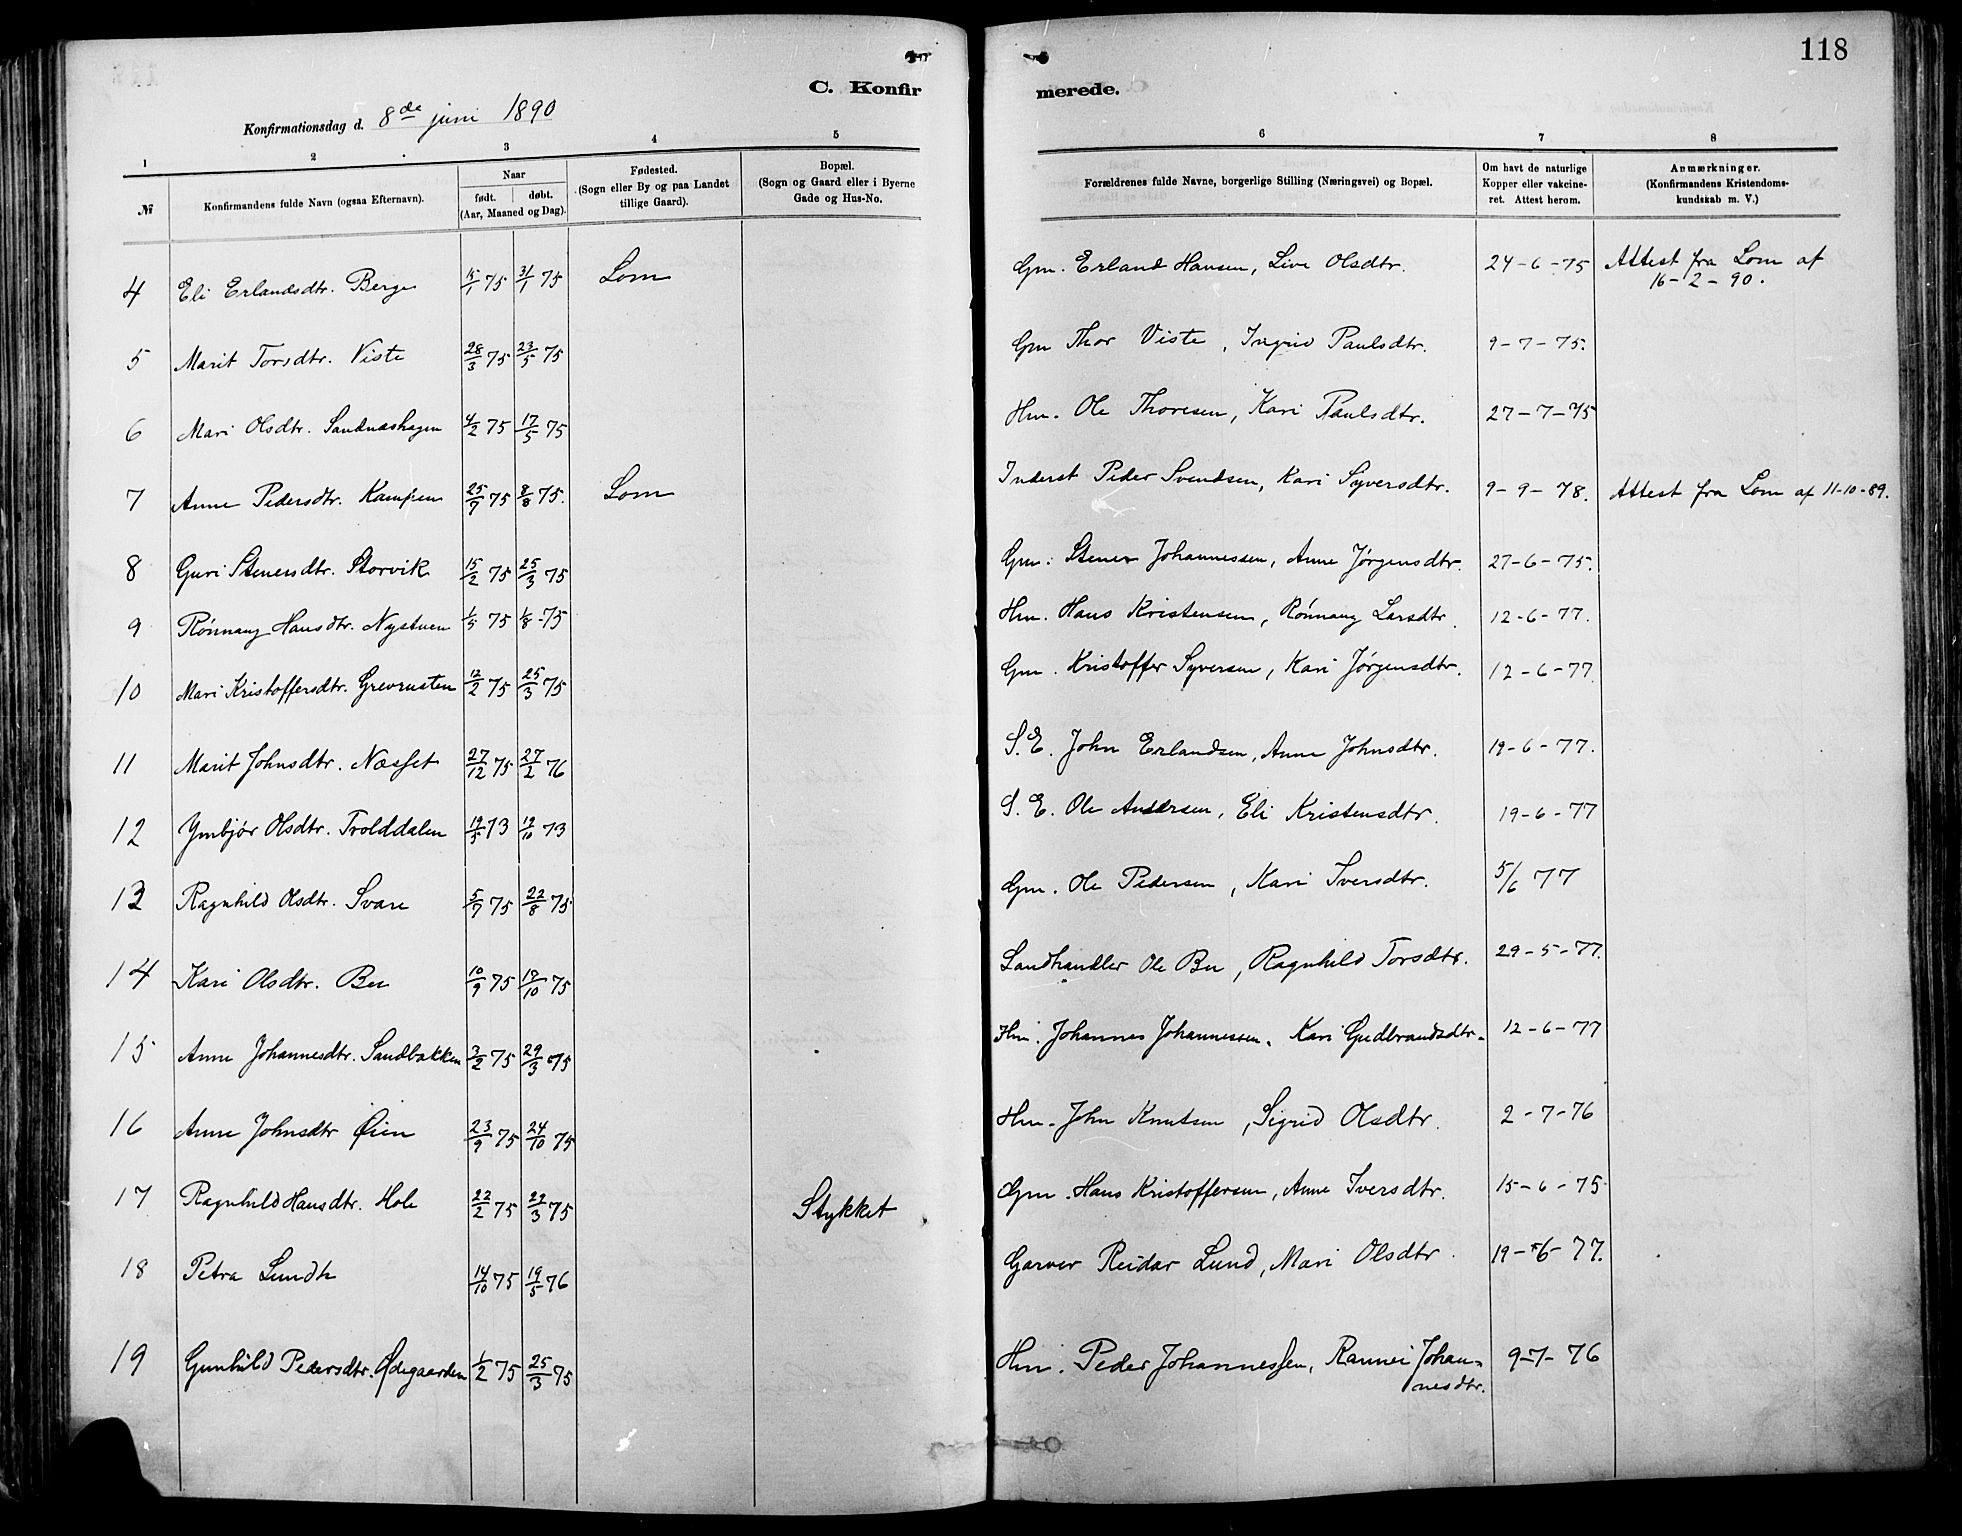 118
C. Konfirmerede.
Konfirmationsdag d. 8de juni 1890
1 2 3 4 5 6 7 8
№ Konfirmandens fulde Navn (ogsaa Efternavn). Naar født. døbt. (Aar, Maaned og Dag). Fødested. (Sogn eller By og paa Landet tillige Gaard). Bopæl. (Sogn og Gaard eller i Byerne Gade og Hus-No. Forældrenes fulde Navne, borgerlige Stilling (Næringsvei) og Bopæl. Om havt de naturlige Kopper eller vakcineret. Attest herom. Anmærkninger. (Konfirmandens Kristendomskundskab m. V.)
4 Eli Erlandsdtr. Berge 15/1 75 31/1 75 Lom Gm. Erland Hansen, Live Olsdtr. 24-6-75 Attest fra Lom af
16-2-90.
5 Marit Torsdtr. Viste 28/3 75 23/5 75 Gm Thor Viste, Ingrid Paulsdtr. 9-7-75.
6 Mari Olsdtr. Sandnæshagen 4/2 75 17/5 75 Hm. Ole Thoresen, Kari Paulsdtr. 27-7-75
7 Anne Pedersdtr. Kampen 25/7 75 8/8 75. Lom Inderst Peder Svendsen, Kari Syversdtr. 9-9-78. Attest fra Lom af 11-10-89.
8 Guri Stenersdtr. Storvik 15/2 75 25/3 75 Gm. Stener Johannessen, Anne Jørgensdtr. 27-6-75.
9 Rønnaug Hansdtr. Nystuen 1/5 75 1/8-75 Hm. Hans Kristensen, Rønnaug Larsdtr. 12-6-77.
10 Mari Kristoffersdtr. Grevrusten 12/2 75 25/3 75 Gm. Kristoffer Syversen, Kari Jørgensdtr. 12-6-77
11 Marit Johnsdtr. Næsset 27/12 75 27/2 76 S. E. John Erlandsen, Anne Johnsdtr. 19-6-77.
12 Ymbjør Olsdtr. Trolddalen 19/5 73 12/10 73 S. E. Ole Andersen, Eli Kristensdtr. 19-6-77
13 Ragnhild Olsdtr. Svare 5/7 75 22/8 75 Gm. Ole Pedersen, Kari Iversdtr. 5/6 77
14 Kari Olsdtr. Bu 10/9 75 10/10 75 Landhandler Ole Bu, Ragnhild Torsdtr. 29-5-77.
15 Anne Johannesdtr. Sandbakken 3/2 75 29/3 75 Hm. Johannes Johannessen, Kari Gudbrandsdtr. 12-6-77
16 Anne Johnsdtr Øien 23/9 75 24/10 75 Hm. John Knutsen, Sigrid Olsdtr. 2-7-76
17 Ragnhild Hansdtr. Hole 22/2 75 29/3 75 Stykket Gm. Hans Kristoffersen, Anne Iversdtr. 15-6-75
18 Petra Lundh 14/10 75 19/5 76 Garver Reidar Lund, Mari Olsdtr 19-6-77.
19 Gunhild Pedersdtr. Ødegaarden 1/2 75 25/3 75 Hm. Peder Johannessen, Rannei Johan-
nesdtr. 9-7-76